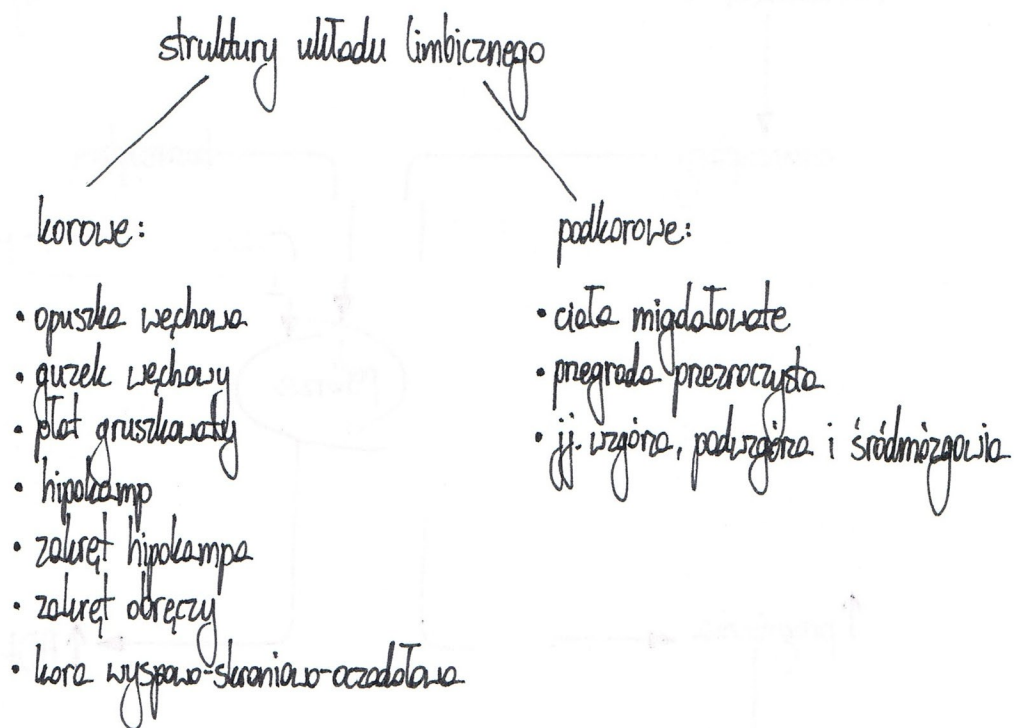 struktury układu limbicznego
korowe:
• opuszka węchowa
• guzek węchowy
• płat gruszkowaty
• hipokamp
• zakręt hipokampa
• zakręt obręczy
• kora wyspowo-skroniowo-oczodołowa
podkorowe:
• ciała migdałowate
• przegroda przezroczysta
• jj. wzgórza, podwzgórza i śródmózgowia